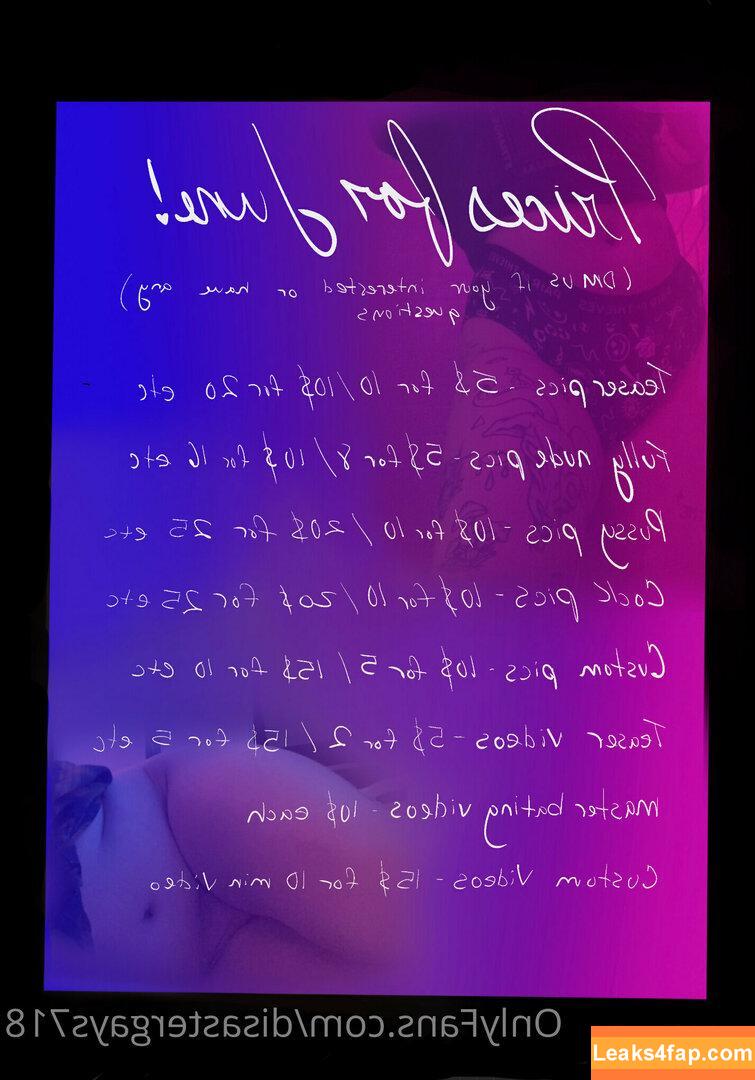 Prices for June!
(DM us if your interested or have any
questions)
Teaser pics - 5$ for 10/10$ for 20 etc
Fully nude pics - 5$ for 8/10$ for 16 etc
Pussy pics - 10$ for 10/20$ for 25 etc
Cock pics - 10$ for 10/20$ for 25 etc
Custom pics - 10$ for 5/15$ for 10 etc
Teaser videos - 5$ for 2/15$ for 5 etc
Master bating videos - 10$ each
Custom Videos - 15$ for 10 min video
OnlyFans.com/disastergays718
Leaks4fap.com